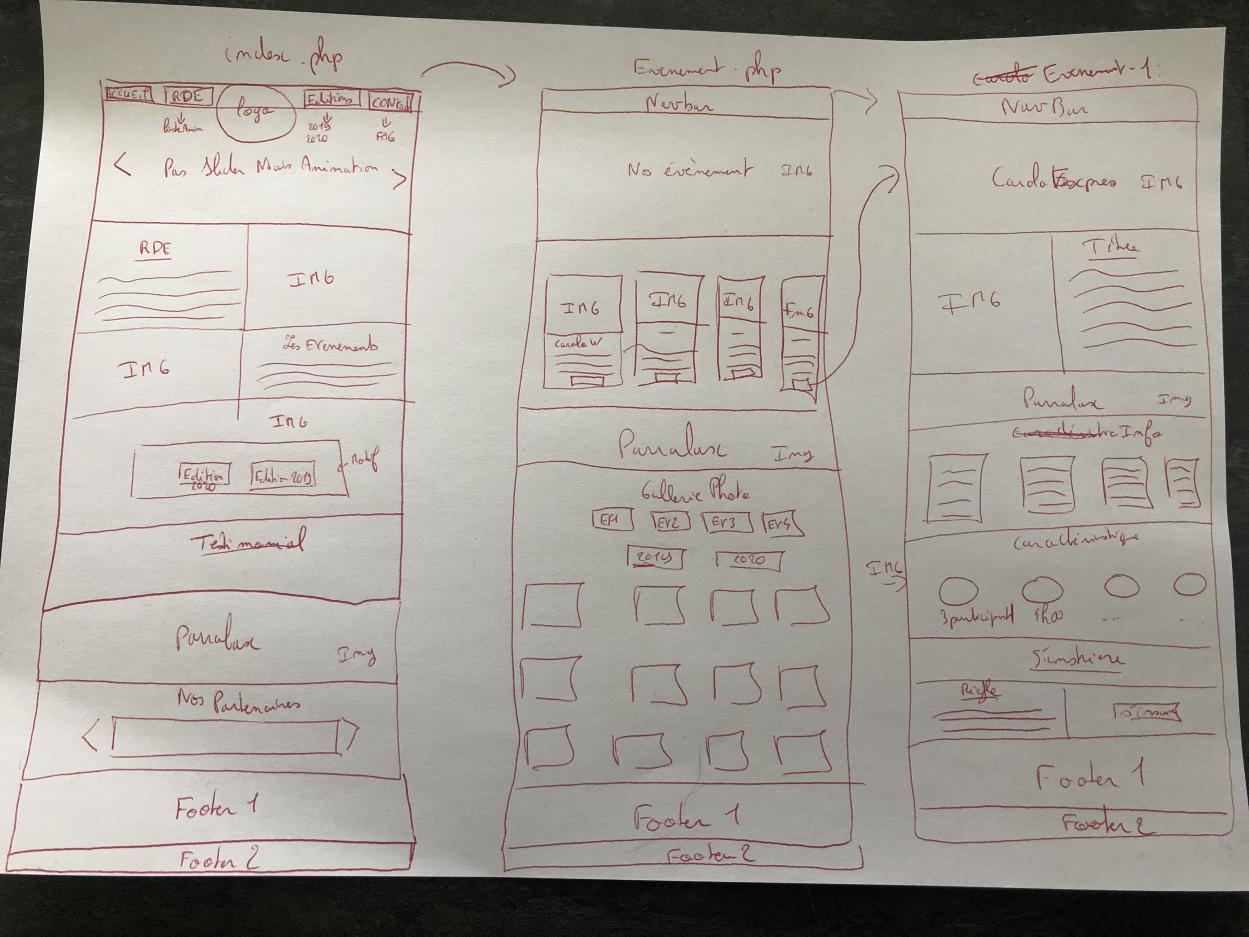 index.php
ACCUEIL RDE logo Editions CONTACT
2019
2020
FAQ
< Pas Slider Mais Animation >
RDE
IMG
IMG
Les Evenements
IMG
Motif
Edition 2020
Edition 2019
Testimonial
Parralax
Img
Nos Partenaires
Footer 1
Footer 2
Evenement.php
NavBar
No évènement IMG
IMG IMG IMG IMG
Carolo W
Parralax
Img
Gallerie Photo
EV1 EV2 EV3 EV4
2019 2020
Footer 1
Footer 2
Evenement-1:
NavBar
Carolo Express IMG
IMG
Titre
Parralax Img
Info
Caractéristique
IMG
3 participant 4h00 ... ...
S'inscrire
Règle
Footer 1
Footer 2